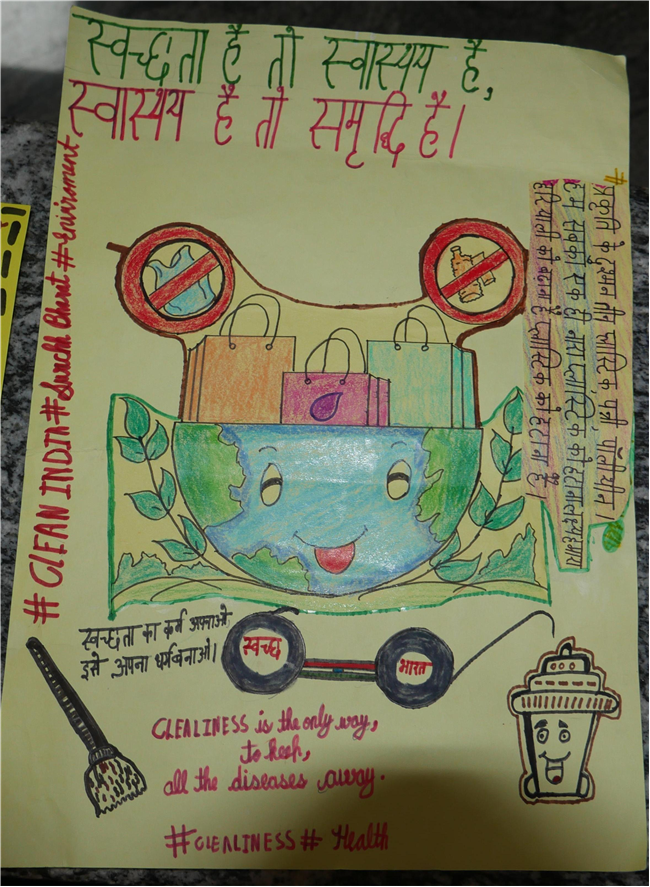 स्वच्छता है तो स्वास्थय है,
स्वास्थय है तो समृद्धि है।
#CLEAN INDIA#Swachh Bharat#enviroment
#प्रकृति के दुश्मन तीर प्लास्टिक पन्नी पॉलीथीन
हम सबका एक ही नारा प्लास्टिक को हटाना लक्ष्य हमारा
हरियाली को बढ़ाना है प्लास्टिक को हटाना है।
स्वच्छता का कर्म अपनाओ
इसे अपना धर्म बनाओ।
स्वच्छ
भारत
CLEALINESS is the only way,
to keep,
all the diseases away.
#CLEALINESS# Health